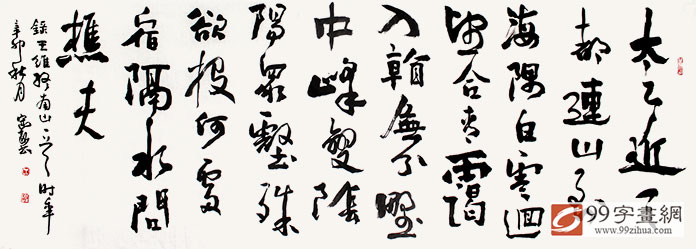 太乙近天
都連山到
海隅白雲迴
望合青靄
入看無分野
中峰變陰
陽眾壑殊
欲投何處
宿隔水問
樵夫
錄王維終南山 時年
辛卯秋月
99字畫網
www.99zihua.com